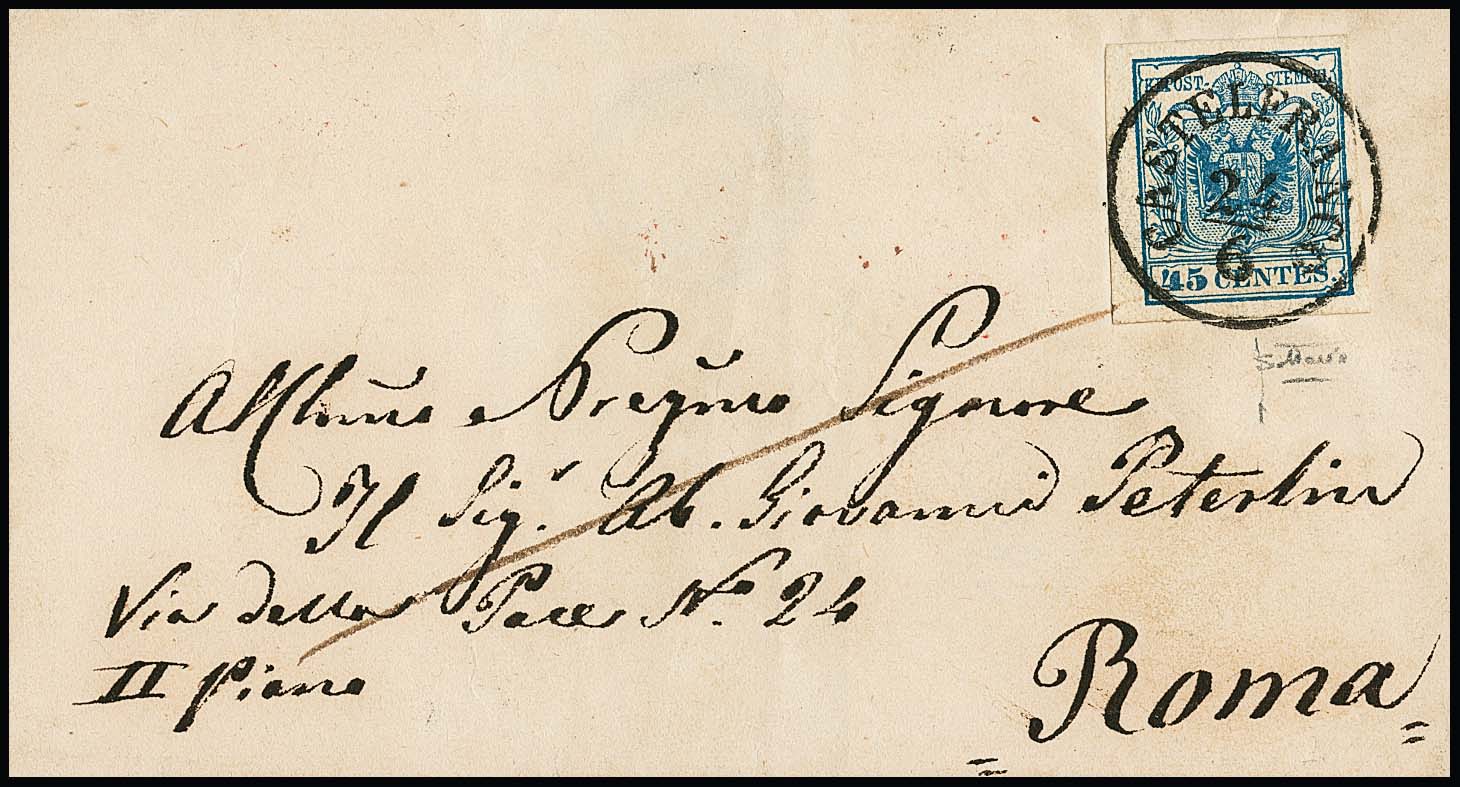 KKPOST-STEMPEL
CASTELFRANCO
24
6
45 CENTES.
All' Ill͞mo e Preg͞mo Signore
Il Sig.r Ab. Giovanni Peterlin
Via della Pace N.o 24
II piano
Roma